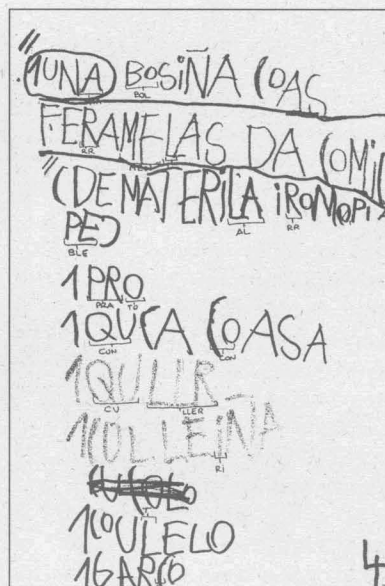 "1UNA BOSIÑA COAS
BOL
FERAMELAS DA COMI
RR
"(DE MATERILA IROMOPI
AL RR
PE)
BLE
1 PRO
PRA TO
1 QUCA COASA
CUN CON
1 QULIR
CU LLER
1 COLLEIÑA
RI
1 COULELO
1 GARCO
4